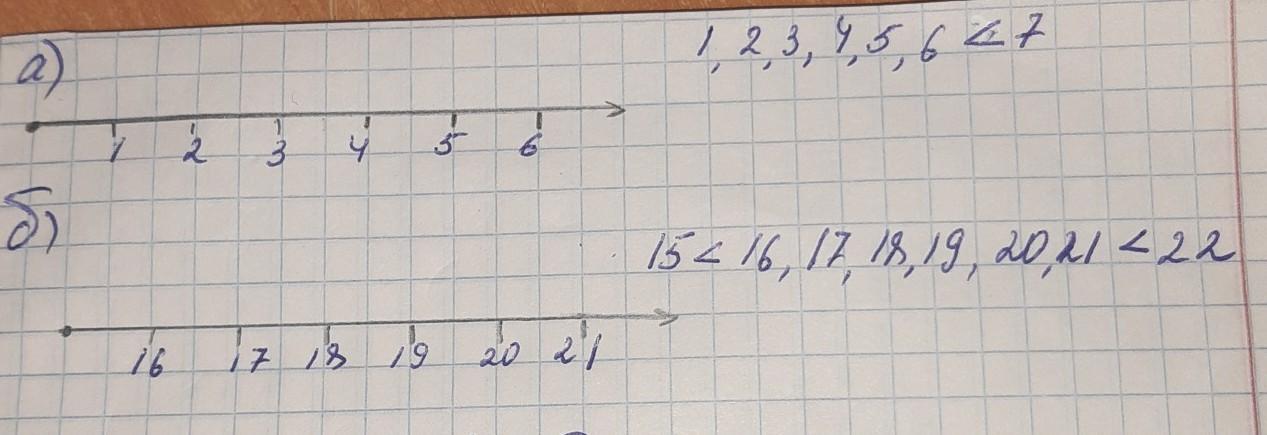 а)
1, 2, 3, 4, 5, 6 < 7
1 2 3 4 5 6
б)
15 < 16, 17, 18, 19, 20, 21 < 22
16 17 18 19 20 21